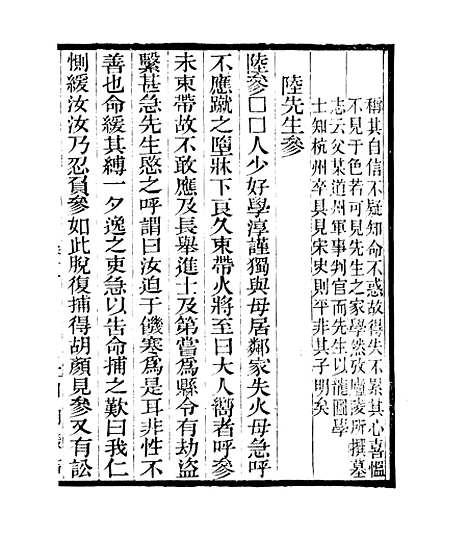 稱其自信不疑知命不惑故得失不累其心喜慍
不見于色若可見先生之家學然攷廬陵所撰墓
志云父某道州軍事判官而先生以龍圖學
士知杭州卒具見宋史則平非其子明矣
陸先生參
陸參□□人少好學淳謹獨與母居鄰家失火母急呼
不應蹴之墮牀下良久束帶火將至曰大人嚮者呼參
未束帶故不敢應及長舉進士及第嘗爲縣令有劫盜
繫甚急先生愍之呼謂曰汝迫于饑寒爲是耳非性不
善也命緩其縛一夕逸之吏急以告命捕之歎曰我仁
惻緩汝汝乃忍負參如此脫復捕得胡顏見參又有訟